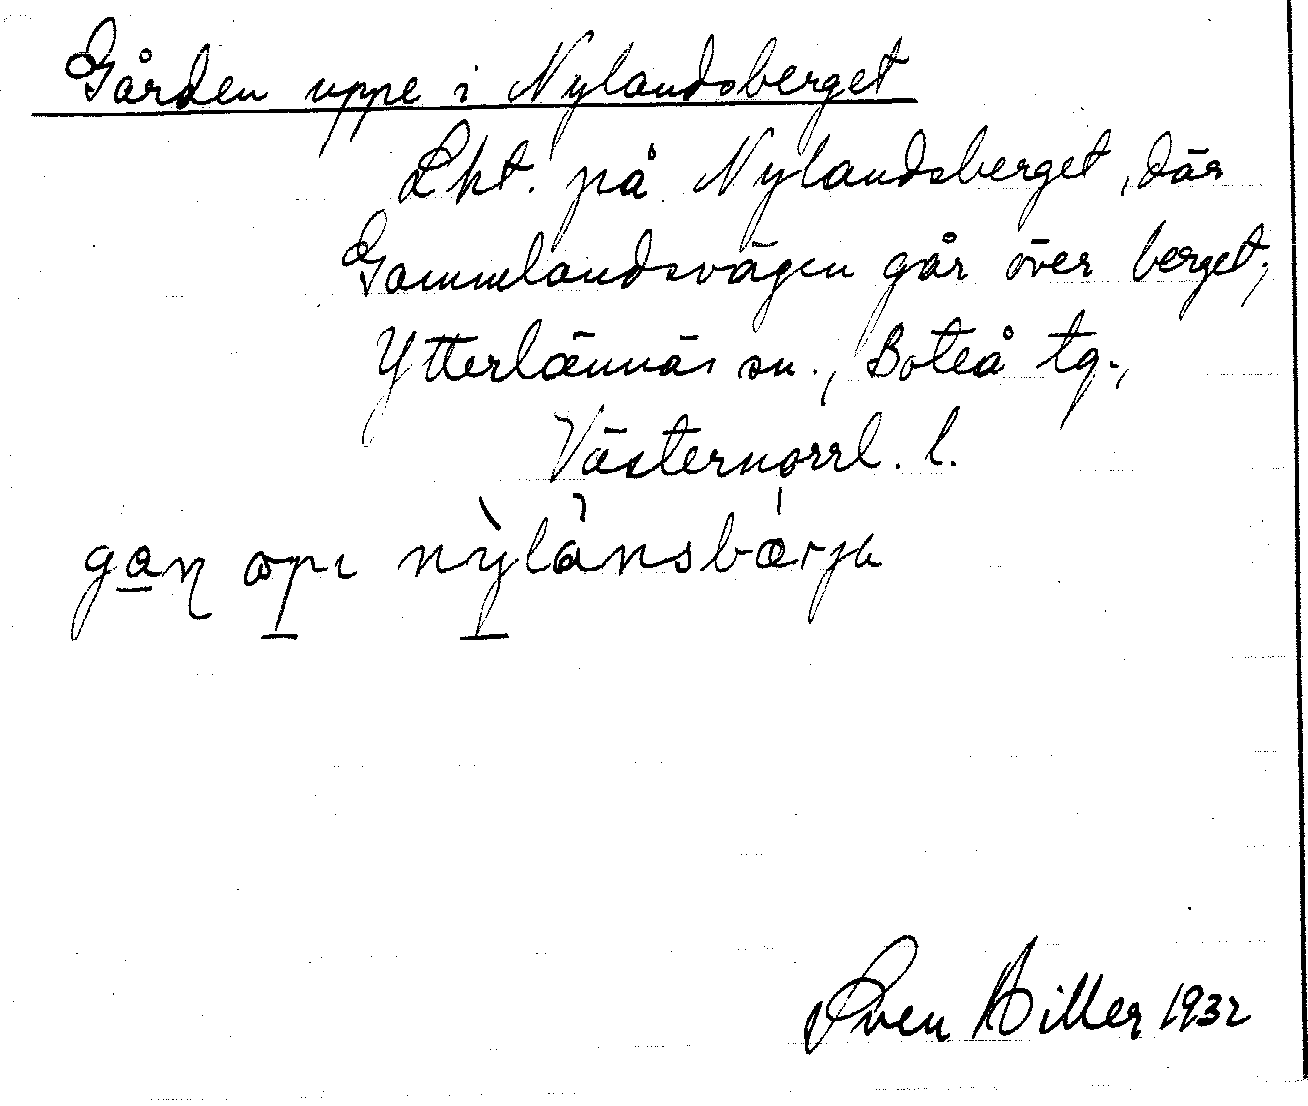 Gården uppe i Nylandsberget
Lht. på Nylandsberget, där
Gammlandsvägen går över berget;
Ytterlännäs sn., Boteå tg.,
Västernorrl. l.
gan̲ ɷpɩ nỳlànsbærja
Sven Hiller 1932